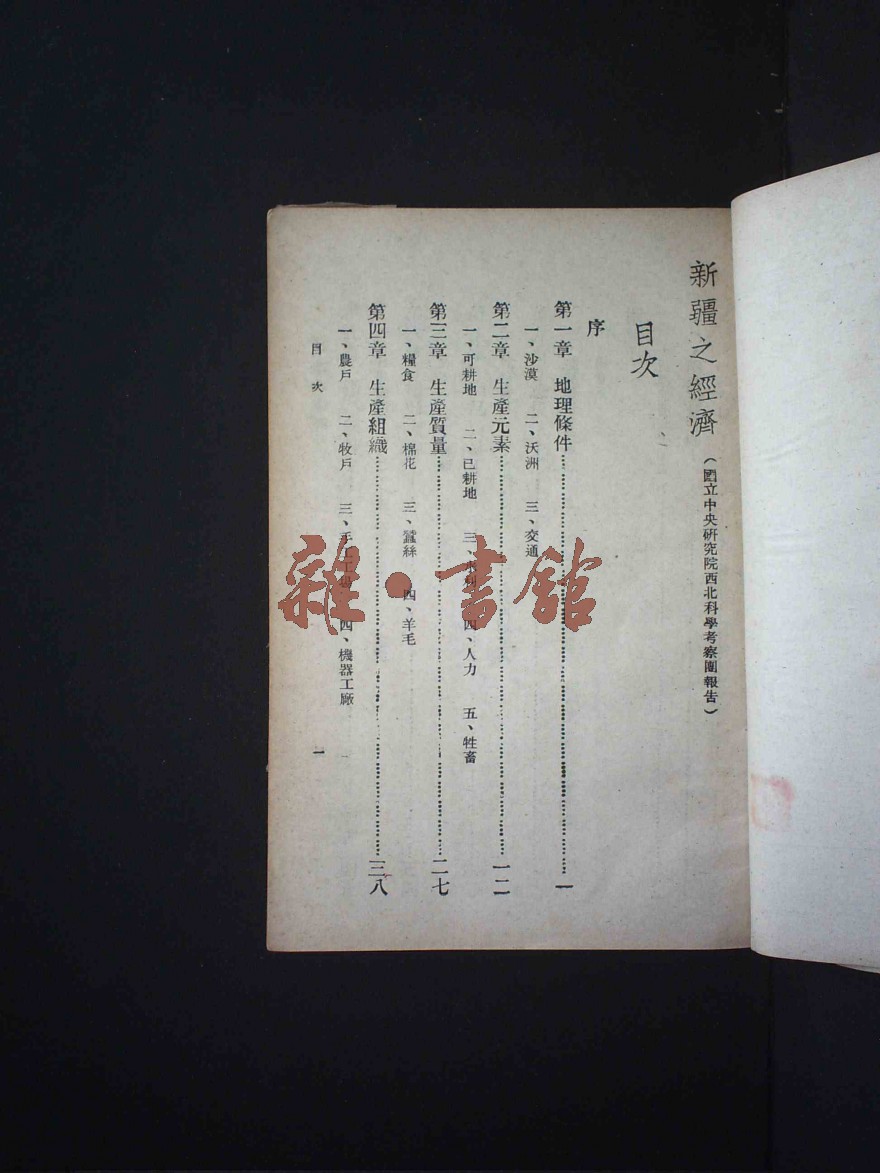 新疆之經濟（國立中央研究院西北科學考察團報告）
目次
序
第一章 地理條件……一
一、沙漠 二、沃洲 三、交通
第二章 生產元素……一二
一、可耕地 二、已耕地 三、水利 四、人力 五、牲畜
第三章 生產質量……二七
一、糧食 二、棉花 三、蠶絲 四、羊毛
第四章 生產組織……三八
一、農戶 二、牧戶 三、手工工 四、機器工廠
目次 一
雜·書館